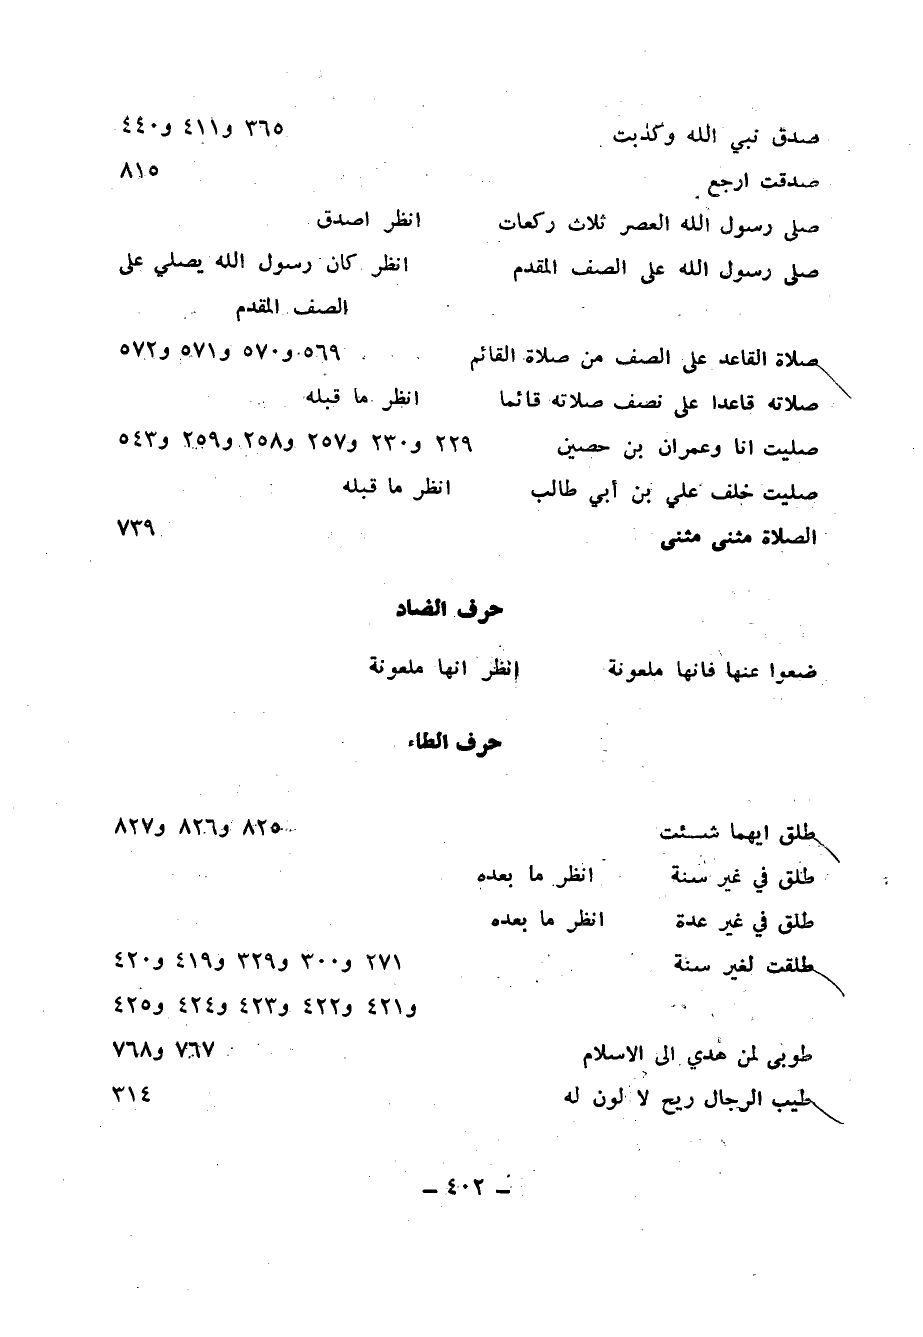 صدق نبي الله وكذبت ٣٦٥ و٤١١ و٤٤٠
صدقت ارجع ٨١٥
صلى رسول الله العصر ثلاث ركعات انظر اصدق
صلى رسول الله على الصف المقدم انظر كان رسول الله يصلي على
الصف المقدم
صلاة القاعد على الصف من صلاة القائم ٥٦٩ و٥٧٠ و٥٧١ و٥٧٢
صلاته قاعدا على نصف صلاته قائما انظر ما قبله
صليت انا وعمران بن حصين ٢٢٩ و٢٣٠ و٢٥٧ و٢٥٨ و٢٥٩ و٥٤٣
صليت خلف علي بن أبي طالب انظر ما قبله
الصلاة مثنى مثنى ٧٣٩
حرف الضاد
ضعوا عنها فانها ملعونة انظر انها ملعونة
حرف الطاء
طلق ايهما شئت ٨٢٥ و٨٢٦ و٨٢٧
طلق في غير سنة انظر ما بعده
طلق في غير عدة انظر ما بعده
طلقت لغير سنة ٢٧١ و٣٠٠ و٣٢٩ و٤١٩ و٤٢٠
و٤٢١ و٤٢٢ و٤٢٣ و٤٢٤ و٤٢٥
طوبى لمن هدي الى الاسلام ٧٦٧ و٧٦٨
طيب الرجال ريح لا لون له ٣١٤
— ٤٠٢ —